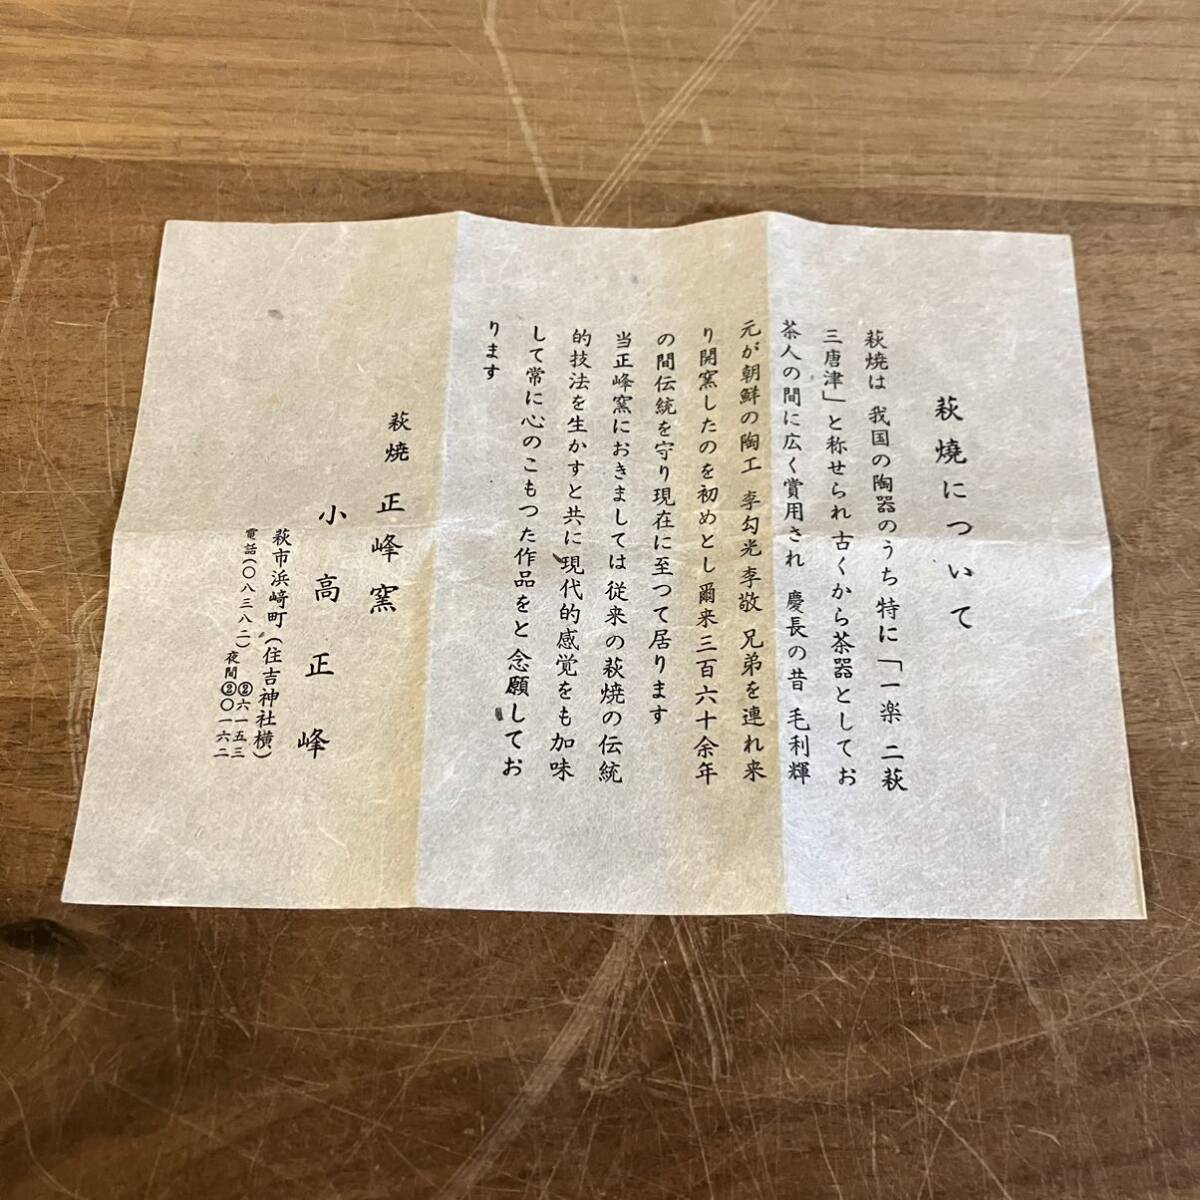 萩焼について
萩焼は 我国の陶器のうち特に「一楽 二萩
三唐津」と称せられ古くから茶器としてお
茶人の間に広く賞用され 慶長の昔 毛利輝
元が朝鮮の陶工 李勾光 李敬 兄弟を連れ来
り開窯したのを初めとし爾来三百六十余年
の間伝統を守り現在に至つて居ります
当正峰窯におきましては従来の萩焼の伝統
的技法を生かすと共に現代的感覚をも加味
して常に心のこもつた作品をと念願してお
ります
萩焼 正峰窯
小高正峰
萩市浜崎町(住吉神社横)
電話(〇八三八二)②六一五三
夜間②〇一六二